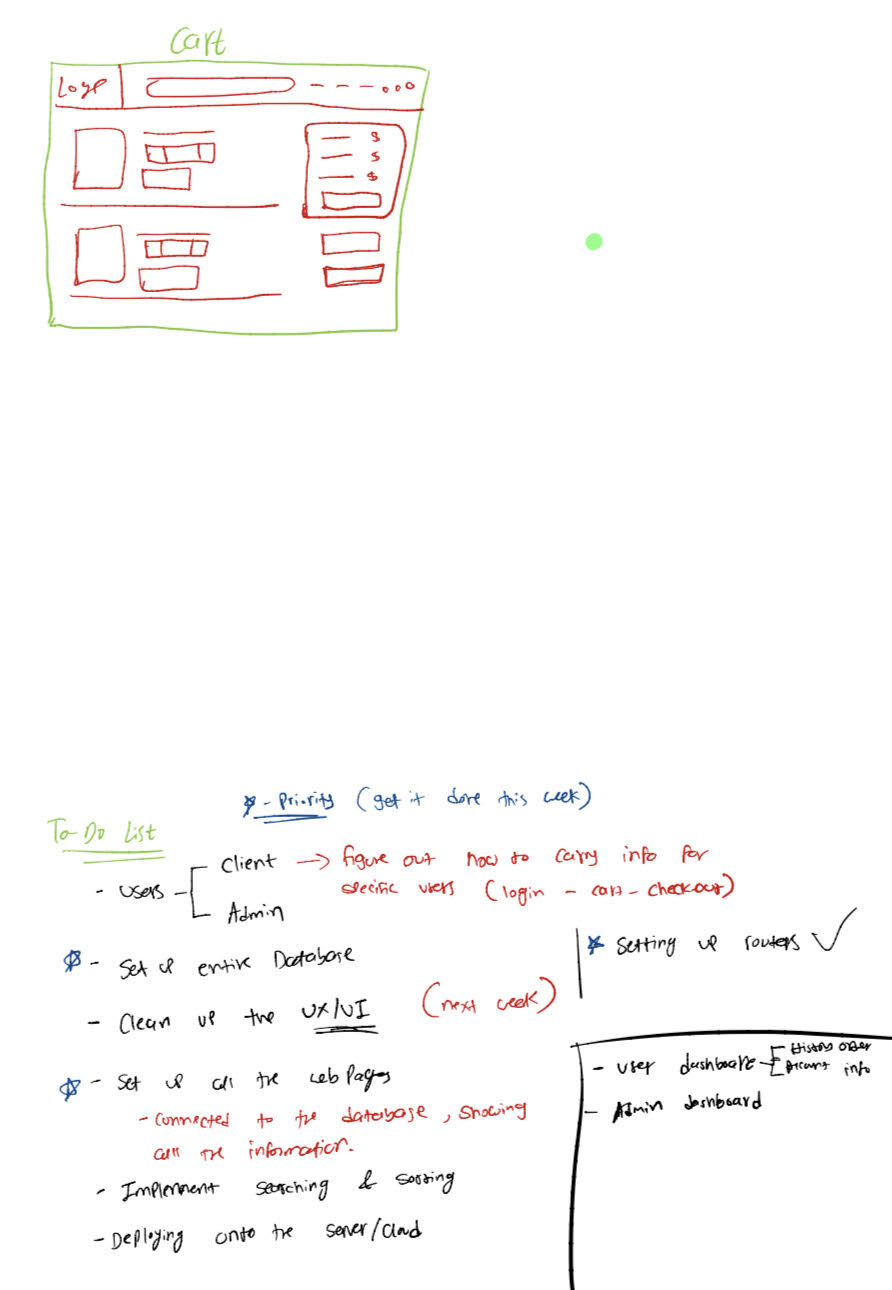 Cart
Logo
$
$
$
☆ - Priority (get it done this week)
To-Do List
- Users
Client → figure out how to carry info for
specific users (login - cart - checkout)
Admin
☆ - Set up entire Database
☆ Setting up routers ✓
- Clean up the UX/UI (next week)
☆ - Set up all the web Pages
- Connected to the database, showing
all the information.
- Implement searching & sorting
- Deploying onto the server/cloud
- User dashboard
History order
Account info
- Admin dashboard